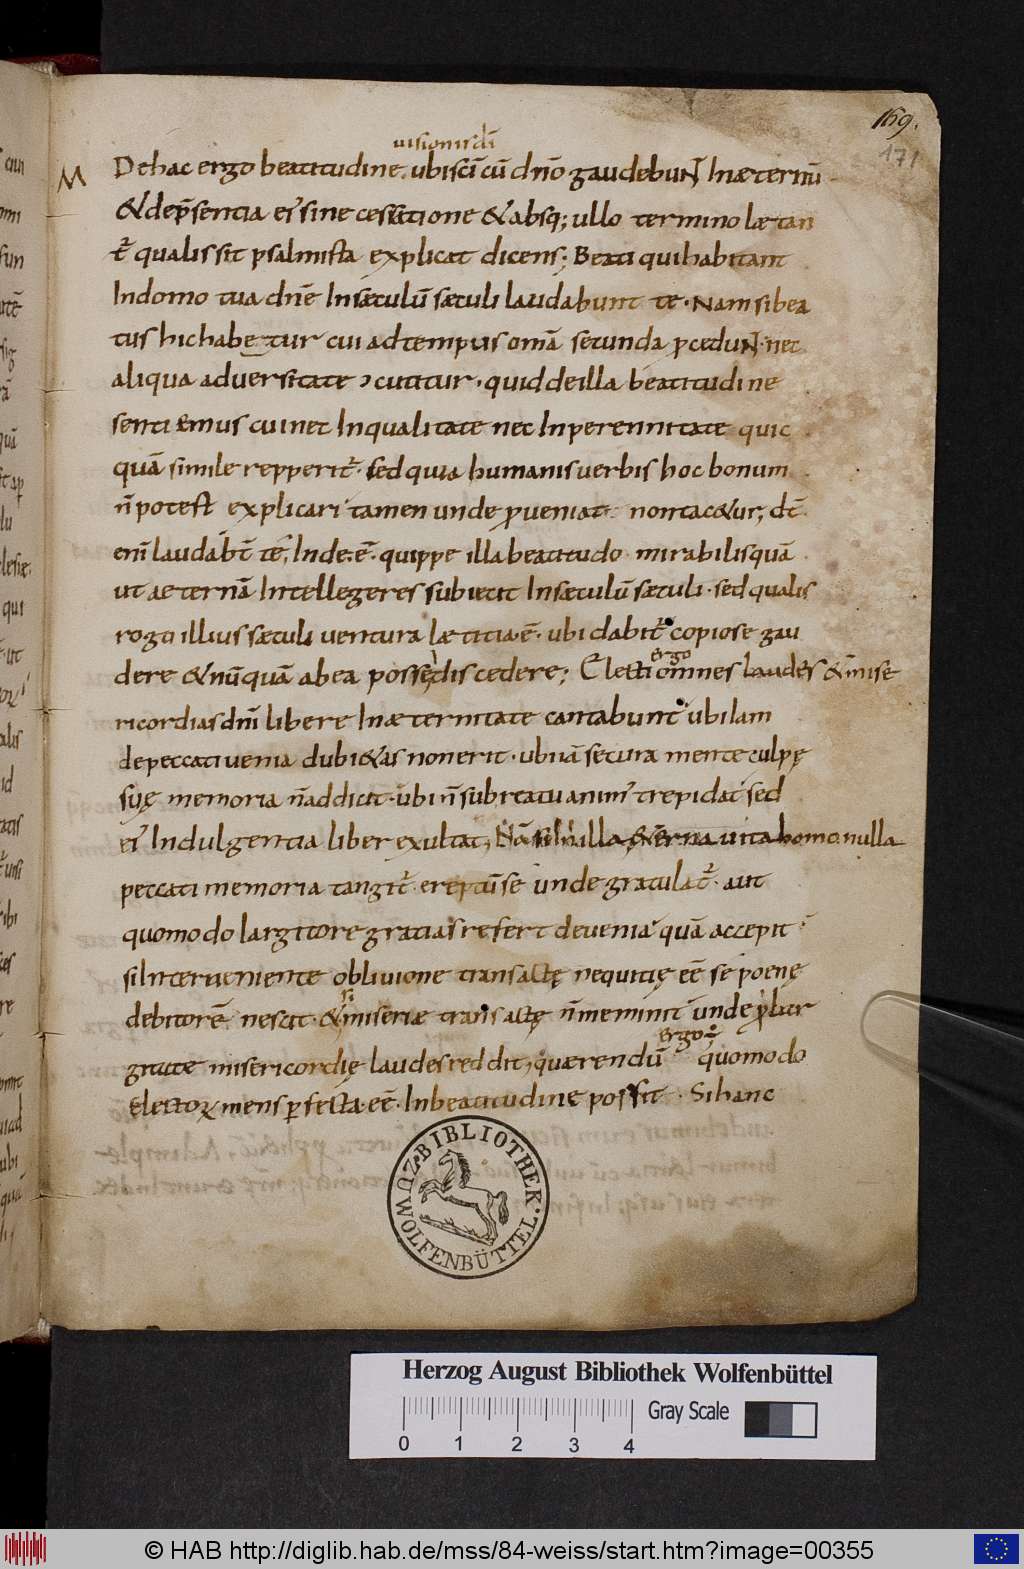 169.
171
uisionis dī
M Dehac ergo beatitudine. ubisc̄i cū dn̄o gaudebuNt Inæternū
&dep̄sentia ei' sine cessatione &absq; ullo termino lætan
t̄ qualis sit psalmista explicat dicens; Beati quihabitant
Indomo tua dn̄e Insæculū sæculi laudabunt te. Nam sibea
tus hichabetur cui adtempus om̄a secunda p̄ceduNt. nec
aliqua aduersitate ɔcutitur. quiddeilla beatitudine
sentiemus cuinec Inqualitate nec Inperennitate quic
quā simile repperit̄. sed quia humanis uerbis hoc bonum
n̄ potest explicari tamen unde p̄ueniat. nontac&ur; dt̄
enī laudab̄t tē; Inde. ē. quippe illa beatitudo mirabilis quā
ut aeternā Intellegeres subiecit Insæculū sæculi. sed qualis
rogo illius sæculi uentura lætitia ē. ubi dabit̄ copiose gau
dere &nūquā abea posse discedere; Electi ergo omnes laudes &mise
ricordias dn̄i libere Inæternitate cantabunt ubi iam
depeccati uenia dubi&as nonerit. ubi iā secura mente culpę
suę memoria n̄ addicit. ubi n̄ subreatu anim' trepidat sed
ei' Indulgentia liber exultat, Nā si in illa &erna uita homo nulla
peccati memoria tangit̄. ereptū se unde gratulat̄. aut
quomodo largitore gratias refert deuenia quā accepit
si Interueniente obliuione transactę nequitię eē se poenę
debitorē nescit. &si miseriæ transactę n̄ meminit unde p̄ latæ
gratæ misericordię laudes reddit, quærendū ergo ÷ quomodo
Electoꝝ mens p̄fecta. eē. Inbeatitudine possit. Sihanc
BIBLIOTHEK. WOLFENBÜTTEL
Herzog August Bibliothek Wolfenbüttel
Gray Scale
0 1 2 3 4
© HAB http://diglib.hab.de/mss/84-weiss/start.htm?image=00355